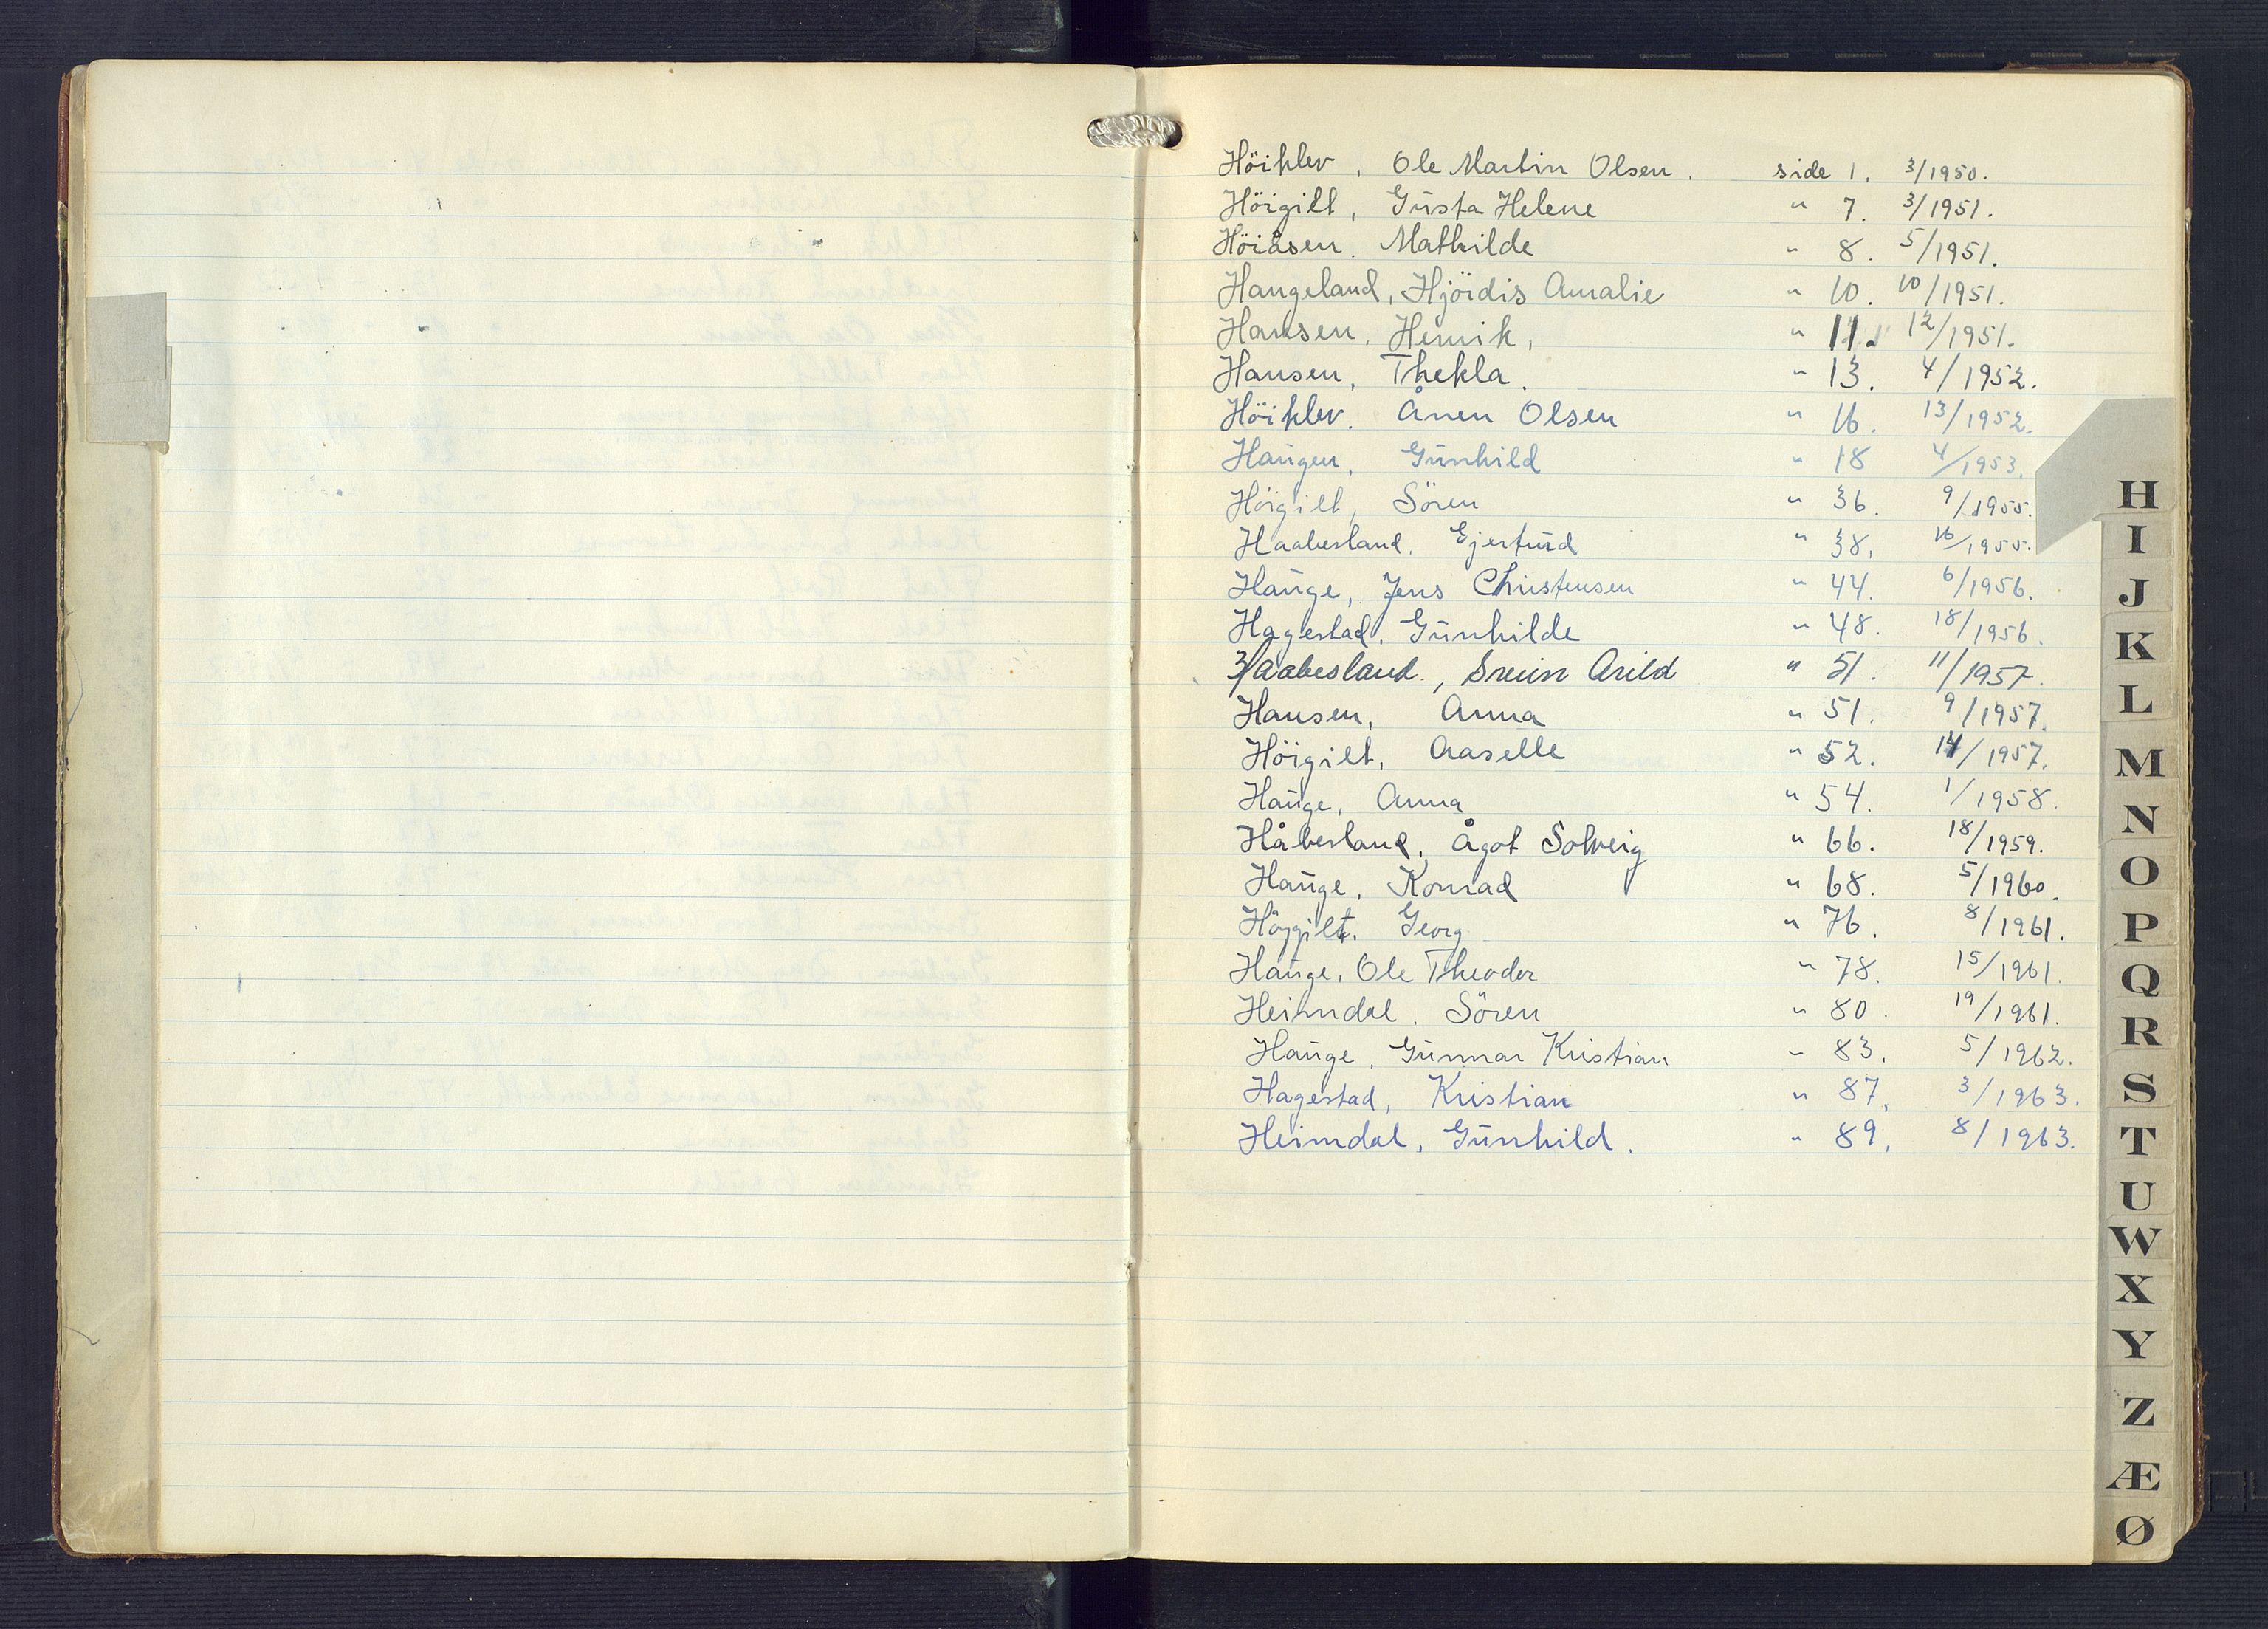 Höiklev, Ole Martin Olsen. side 1. 3/1950.
Höigilt, Gusta Helene " 7. 3/1951.
Höiåsen. Mathilde " 8. 5/1951.
Haugeland, Hjördis Amalie " 10. 10/1951.
Hansen, Henrik, " 11. 12/1951.
Hansen, Thekla. " 13. 4/1952.
Höiklev. Ånen Olsen " 16. 13/1952.
Haugen, Gunhild " 18 4/1953.
Höigilt, Sören " 36. 9/1955.
Haabesland. " 38. 16/1955.
Hauge, Jens Christensen " 44. 6/1956.
Hagestad, Gunhilde " 48. 18/1956.
Haabesland, Svein Arild " 51. 11/1957.
Hansen, Anna " 51. 9/1957.
Höigilt, Aaselle " 52. 14/1957.
Hauge, Anna " 54. 1/1958.
Håbesland, Ågot Solveig " 66. 18/1959.
Hauge, Konrad " 68. 5/1960.
Höygilt. Georg " 76. 8/1961.
Hauge, Ole Theodor " 78. 15/1961.
Heimdal. Sören " 80. 19/1961.
Hauge. Gunnar Kristian " 83. 5/1962.
Hagestad, Kristian " 87. 3/1963.
Heimdal, Gunhild. " 89. 8/1963.
H
I
J
K
L
M
N
O
P
Q
R
S
T
U
W
X
Y
Z
Æ
Ø